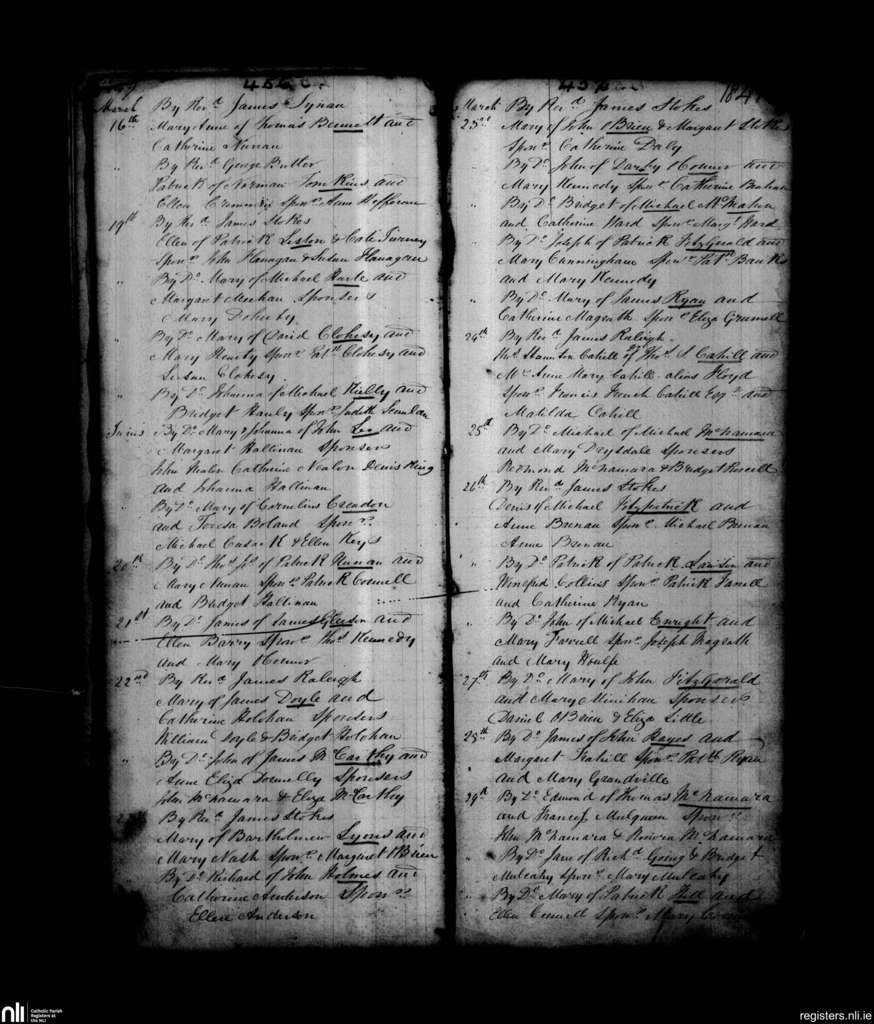 456
March By Revd James Synan
16th Mary Anne of Thomas Bennett and
Catherine Nunan
" By Revd George Butler
Patrick of Norman Tomkins and
Ellen Sponr Anne Hefferan
19th By Revd James Stokes
Ellen of Patrick Liston & Cate Turney
Sponr John Flanagan & Susan Flanagan
" By Do Mary of Michael and
Margaret Meehan Sponsers
Mary Doherty
" By Do Mary of David Clohesy and
Mary Sponr Patk Clohesy and
Susan Clohesy
" By Do Johanna of Michael Kielly and
Bridget Hanly Sponr Judith Scanlan
Twins By Do Mary & Johanna of John Lee and
Margaret Hallinan Sponsers
John Catherine Nealon Denis King
and Johanna Hallinan
" By Do Mary of Cornelius Creadon
and Teresa Boland Sponrs
Michael Cusack & Ellen Keys
20th By Do Thos Js of Patrick Nunan and
Mary Nunan Sponr Patrick Connell
and Bridget Hallinan
21st By Do James of James Gleeson and
Ellen Barry Sponr Thos Kennedy
and Mary O'Connor
22nd By Revd James Raleigh
Mary of James Doyle and
Catherine Holohan Sponsers
William Doyle & Bridget Holohan
" By Do John of James McCarthy and
Anne Eliza Donnelly Sponsers
John McNamara & Eliza McCarthy
By Revd James Stokes
Mary of Bartholmew Lyons and
Mary Nash Sponr Margaret O'Brien
By Do Richard of John Holmes and
Catherine Anderson Sponrs
Ellen Anderson
457 184
March By Revd James Stokes
23rd Mary of John O'Brien & Margaret Stokes
Sponr Catherine Daly
" By Do John of Darby O'Connor and
Mary Kennedy Sponr Catherine
" By Do Bridget of Michael McMahon
and Catherine Ward Sponr Margt Ward
" By Do Joseph of Patrick FitzGerald and
Mary Cunningham Sponr Patk Banks
and Mary Kennedy
" By Do Mary of James Ryan and
Catherine Magrath Sponr Eliza
24th By Revd James Raleigh
Thos Staunton Cahill of Thos S Cahill and
Mrs Anne Mary Cahill alias Floyd
Sponr Francis French Cahill Esqr and
Matilda Cahill
25th By Do Michael of Michael McNamara
and Mary Drysdale Sponsers
Redmond McNamara & Bridget Purcell
26th By Revd James Stokes
Denis of Michael Fitzpatrick and
Anne Brenan Sponr Michael Brenan
Anne Brenan
" By Do Patrick of Patrick and
Winefred Collins Sponr Patrick
and Catherine Ryan
" By Do John of Michael Enright and
Mary Farrell Sponr Joseph Magrath
and Mary Woulfe
27th By Do Mary of John FitzGerald
and Mary Minihan Sponsers
Daniel O'Brien & Eliza Liddle
28th By Do James of John Hayes and
Margaret Sponr Patk Ryan
and Mary Grandville
29th By Do Edmond of Thomas McNamara
and Frances Mulqueen Sponrs
John McNamara & McNamara
" By Do Jane of Richd Going & Bridget
Mulcahy Sponr Mary Mulcahy
" By Do Mary of Patrick and
Ellen Connell Sponr Mary
nli Catholic Parish
Registers at
the NLI
registers.nli.ie